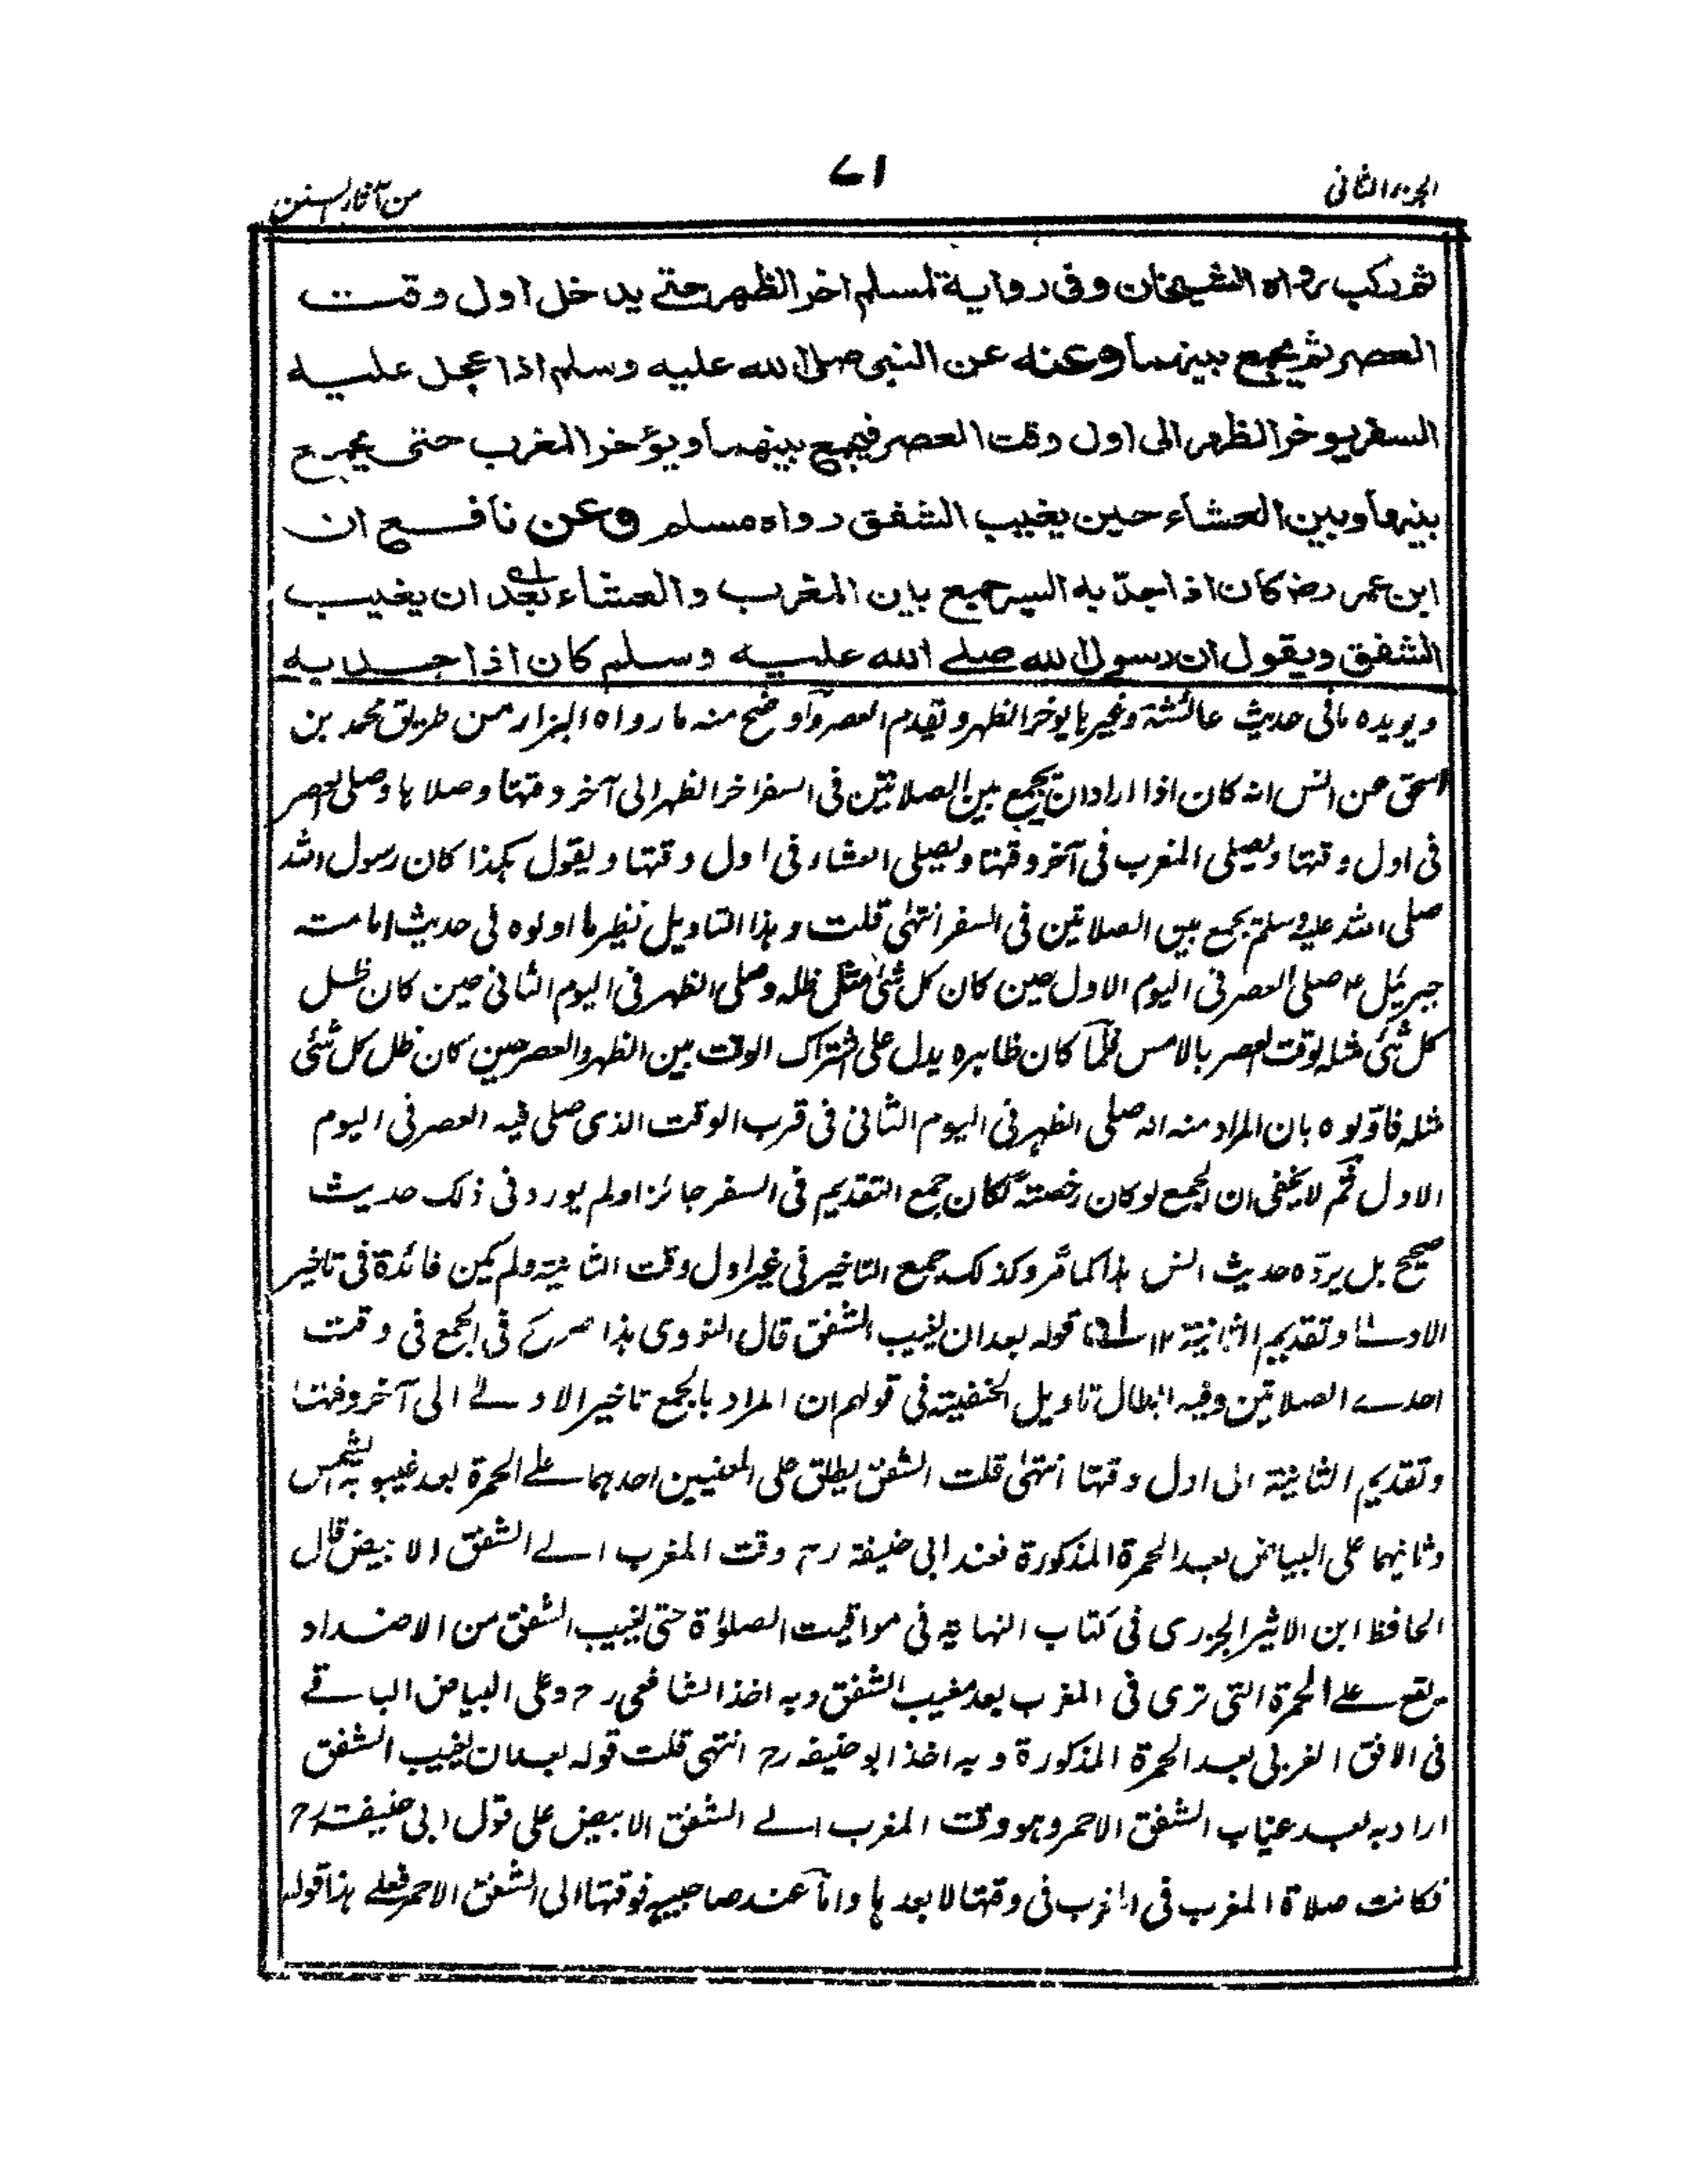 الجزء الثانی
۷۱
من آثار السنن
ثم رکب رواه الشیخان وفی روایة لمسلم اخر الظهر حتے یدخل اول وقت
العصر ثم یجمع بینهما وعنه عن النبی صلی الله علیه وسلم اذا عجل علیه
السفر یوخر الظهر الی اول وقت العصر فیجمع بینهما ویؤخر المغرب حتی یجمع
بینها وبین العشاء حین یغیب الشفق رواه مسلم وعن نافع ان
ابن عمر رض کان اذا جدّ به السیر جمع بین المغرب والعشاء بعد ان یغیب
الشفق ویقول ان رسول الله صلے الله علیه وسلم کان اذا جد به
ویویده مافی حدیث عائشة وغیرہا یوخر الظهر وتقدم العصر وآوضح منه ما رواه البزار من طریق محمد بن
اسحق عن انس انه کان اذا اراد ان یجمع بین الصلاتین فی السفر اخر الظهر الی آخر وقتها وصلاہا وصلی العصر
فی اول وقتها ویصلی المغرب فی آخر وقتها ویصلی العشاء فی اول وقتها ویقول ہکذا کان رسول الله
صلی الله علیه وسلم یجمع بین الصلاتین فی السفر انتهٰی قلت وہذا التاویل نظیر ما اولوه فی حدیث امامته
جبریل ع صلی العصر فی الیوم الاول حین کان کل شئ مثل ظله وصلی الظهر فی الیوم الثانی حین کان ظل
کل شئ مثله لوقت العصر بالامس فلمآ کان ظاہره یدل علی اشتراک الوقت بین الظهر والعصر حین کان ظل کل شئ
مثله فاوّلوه بان المراد منه انه صلی الظهر فی الیوم الثانی فی قرب الوقت الذی صلی فیه العصر فی الیوم
الاول ثم لا یخفی ان الجمع لو کان رخصته لکان جمع التقدیم فی السفر جائزا ولم یورد فی ذلک حدیث
صحیح بل یردّه حدیث انس ہذا کما مَر وکذلک جمع التاخیر فی غیر اول وقت الثانیة ولم یکن فائدة فی تاخیر
الاولے وتقدیم الثانیة ۱۲ قوله بعد ان یغیب الشفق قال النووی ہذا صریح فی الجمع فی وقت
احدے الصلاتین وفیه ابطال تاویل الحنفیته فی قولهم ان المراد بالجمع تاخیر الاولے الی آخر وقتها
وتقدیم الثانیة الی اول وقتها انتهٰی قلت الشفق یطلق علی المعنیین احدہما علے الحمرة بعد غیبوبة الشمس
وثانیهما علی البیاض بعد الحمرة المذکورة فعند ابی حنیفة رح وقت المغرب الے الشفق الابیض قال
الحافظ ابن الاثیر الجزری فی کتاب النهایة فی مواقیت الصلوٰة حتی یغیب الشفق من الاضداد
یقع علے الحمرة التی تری فی المغرب بعد مغیب الشفق وبه اخذ الشافعی رح وعلی البیاض الباقے
فی الافق الغربی بعد الحمرة المذکورة وبه اخذ ابو حنیفه رح انتهی قلت قوله بعد ان یغیب الشفق
اراد به بعد غیاب الشفق الاحمر وہو وقت المغرب الے الشفق الابیض علی قول ابی حنیفته رح
فکانت صلاة المغرب فی المغرب فی وقتها لا بعدہا وامّا عند صاحبیه فوقتها الی الشفق الاحمر فعلے ہذا قوله